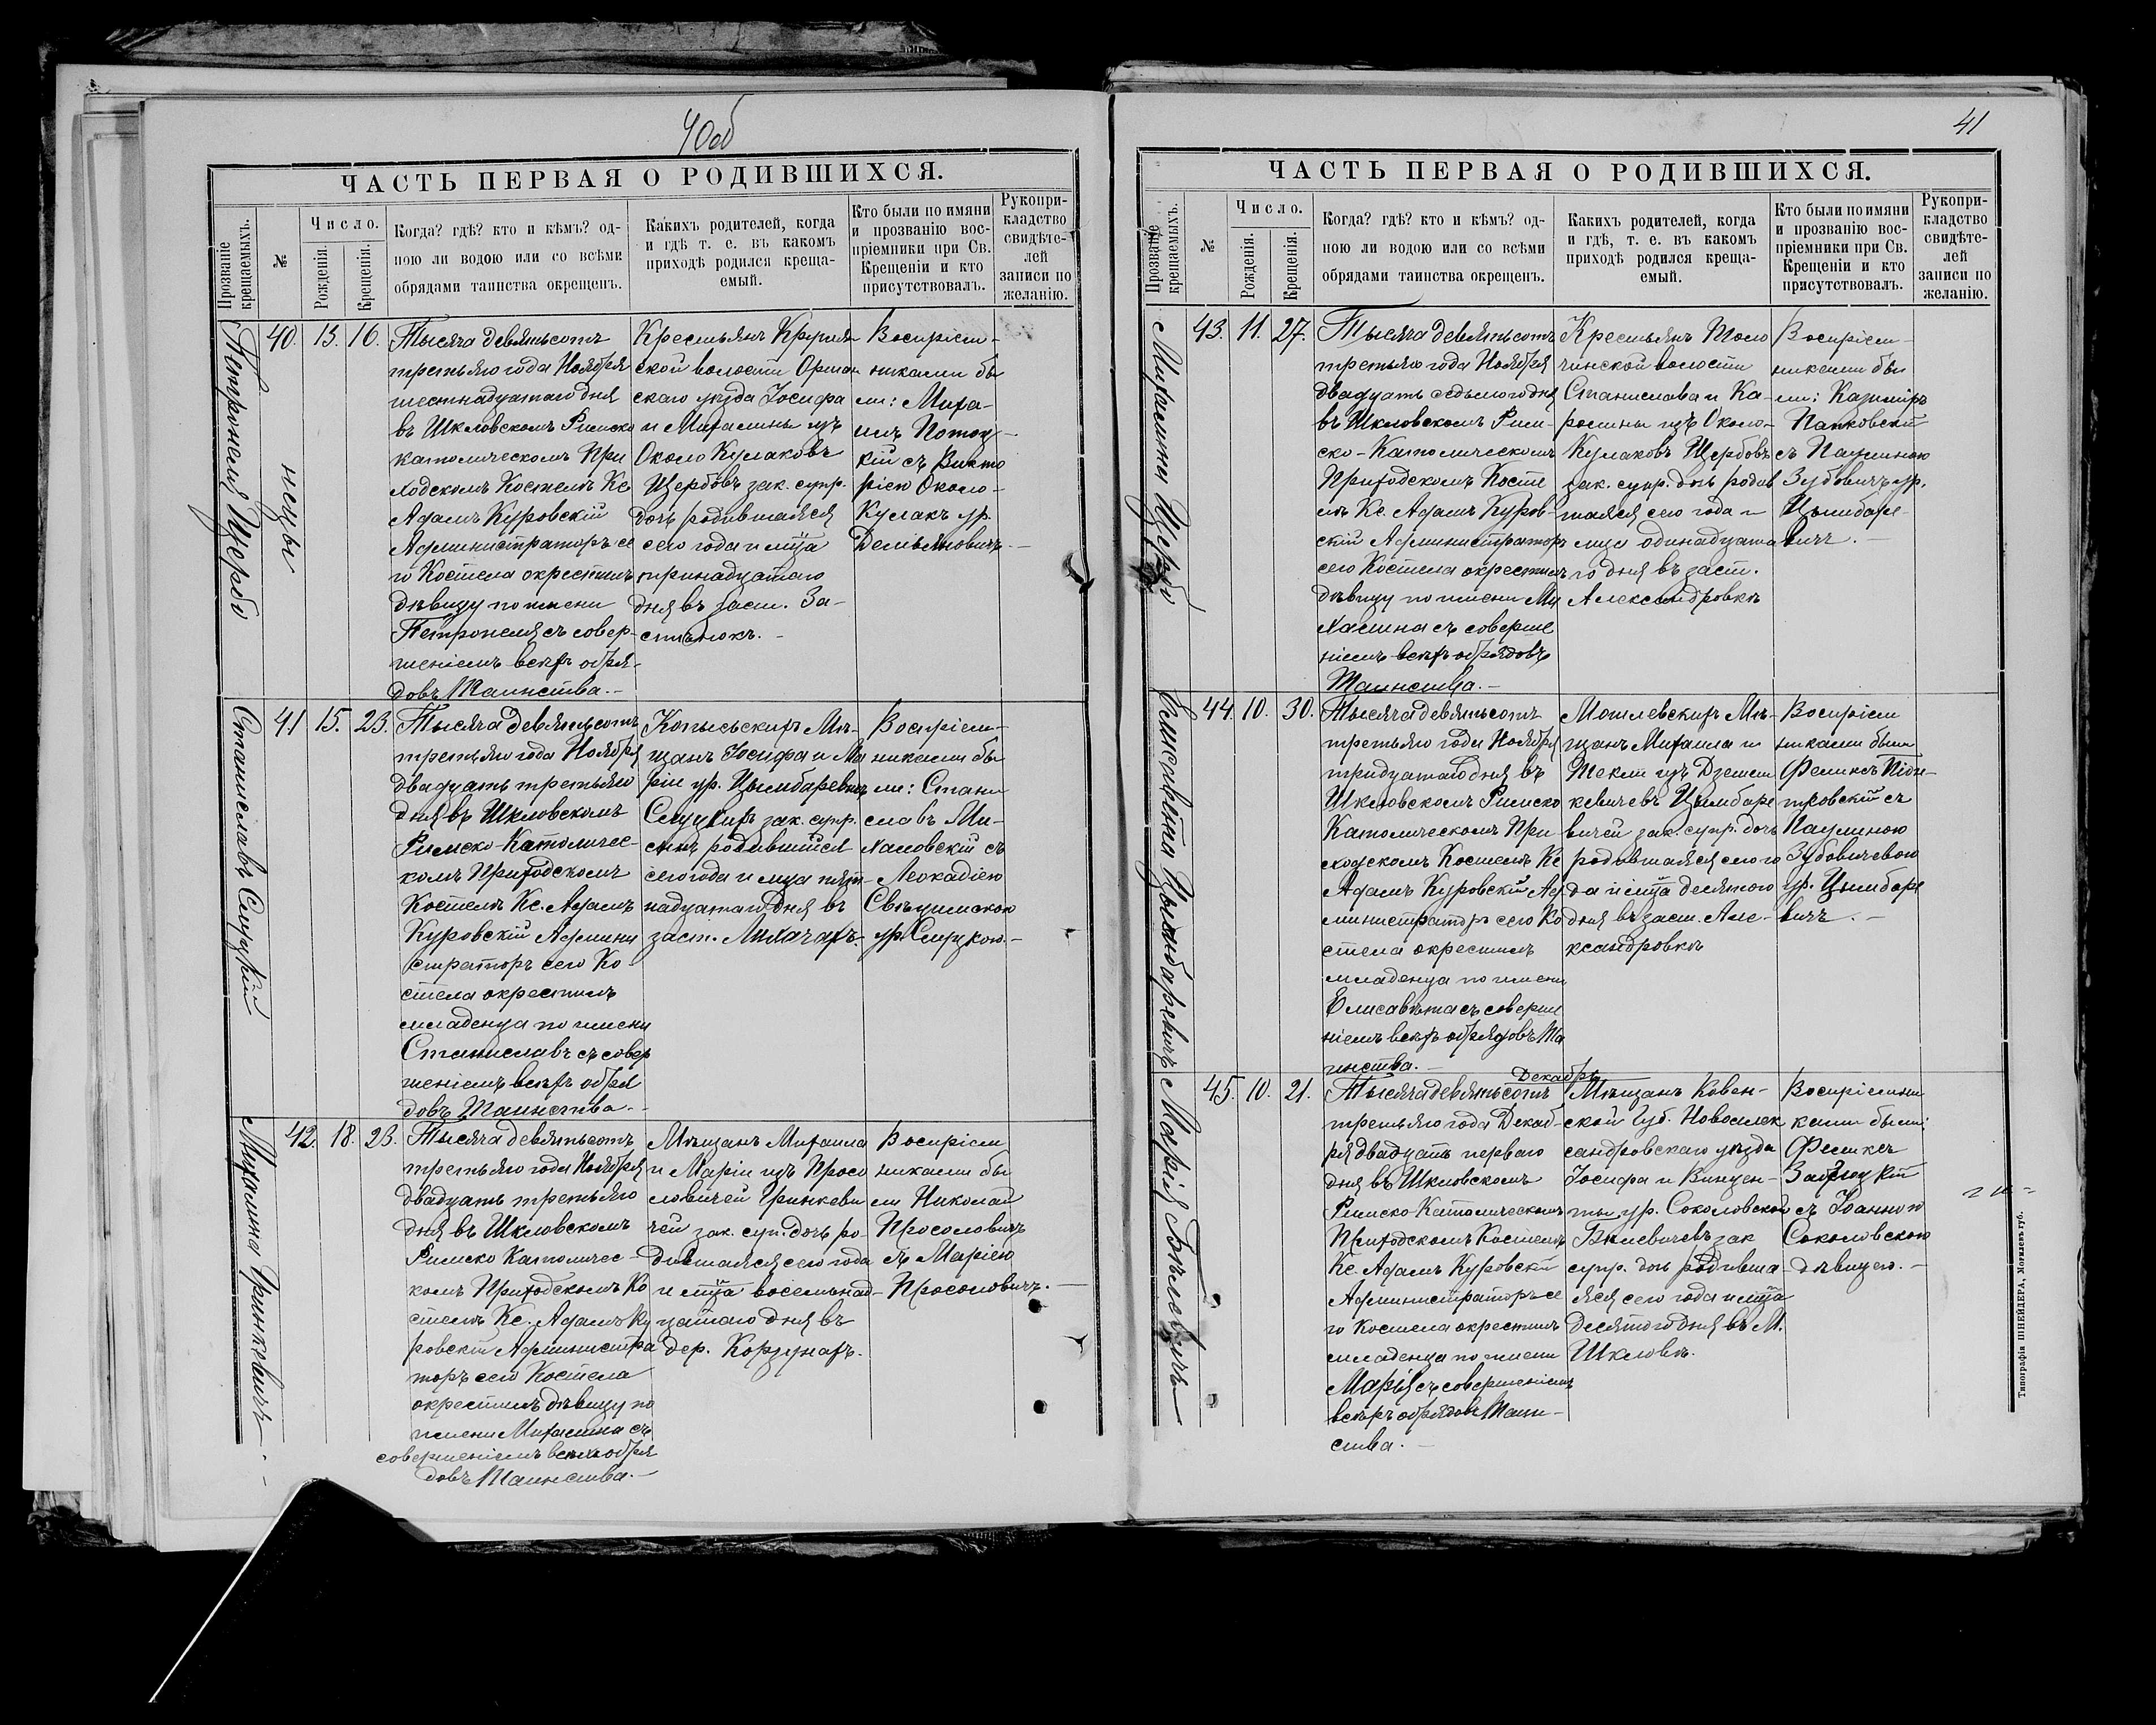 40об
ЧАСТЬ ПЕРВАЯ О РОДИВШИХСЯ.
Прозваніе крещаемыхъ.
№
Число.
Рожденія.
Крещенія.
Когда? гдѣ? кто и кѣмъ? од-
ною ли водою или со всѣми
обрядами таинства окрещенъ.
Какихъ родителей, когда
и гдѣ т. е. въ какомъ
приходѣ родился креща-
емый.
Кто были по имяни
и прозванію вос-
пріемники при Св.
Крещеніи и кто
присутствовалъ.
Рукопри-
кладство
свидѣте-
лей
записи по
желанію.
Петронеля Щербо
40. 13. 16.
Тысяча девятьсотъ
третьяго года Ноября
шестнадцатаго дня
въ Шкловскомъ Римско
католическомъ При
ходскомъ Костелѣ Кс.
Адамъ Куровскій
Администраторъ се
го Костела окрестилъ
дѣвицу по имени
Петронеля съ совер-
шеніемъ всѣхъ обря-
довъ Таинства.-
Крестьянъ Круглян
ской волости Оршан
скаго уѣзда Іосифа
и Михалины изъ
Около Кулаковъ
Щербовъ зак. супр.
дочь родившаяся
сего года и мѣца
тринадцатаго
дня въ заст. За-
стѣнокъ.-
Воспріем-
никами бы
ли: Миха-
илъ Потоц-
кій съ Викто
ріею Около-
Кулакъ ур.
Демьяновичъ.-
Станиславъ Слуцкій
41 15. 23.
Тысяча девятьсотъ
третьяго года Ноября
двадцать третьяго
дня въ Шкловскомъ
Римско-Католичес-
комъ Приходскомъ
Костелѣ Кс. Адамъ
Куровскій Админи
страторъ сего Ко-
стела окрестилъ
младенца по имени
Станиславъ съ совер
шеніемъ всѣхъ обря
довъ Таинства.-
Копысьскихъ Мѣ-
щанъ Іосифа и Ма
ріи ур. Цымбаревичъ
Слуцкихъ зак. супр.
сынъ родившійся
сего года и мца пят-
надцатаго дня въ
заст. Лихачахъ.
Воспріем-
никами бы
ли: Стани
славъ Ми-
халовскій съ
Леокадіею
ур. Слуцкою.-
Михалина Гринкевичъ
42. 18. 23.
Тысяча девятьсотъ
третьяго года Ноября
двадцать третьяго
дня въ Шкловскомъ
Римско Католичес-
комъ Приходскомъ Ко
стелѣ Кс. Адамъ Ку
ровскій Администра
торъ сего Костела
окрестилъ дѣвицу по
имени Михалина съ
совершеніемъ всѣхъ обря
довъ Таинства.-
Мѣщанъ Михаила
и Маріи изъ Просо
ловичей Гринкеви
чей зак. суп. дочь ро-
дившаяся сего года
и мѣца восемнад-
цатаго дня въ
дер. Корзунахъ.
Воспріем
никами бы
ли Николай
Просоловичъ
съ Маріею
Просоловичъ.-
41
ЧАСТЬ ПЕРВАЯ О РОДИВШИХСЯ.
Прозваніе крещаемыхъ.
№
Число.
Рожденія.
Крещенія.
Когда? гдѣ? кто и кѣмъ? од-
ною ли водою или со всѣми
обрядами таинства окрещенъ.
Какихъ родителей, когда
и гдѣ, т. е. въ какомъ
приходѣ родился креща-
емый.
Кто были по имяни
и прозванію вос-
пріемники при Св.
Крещеніи и кто
присутствовалъ.
Рукопри-
кладство
свидѣте-
лей
записи по
желанію.
Михалина Щербо
43. 11. 27.
Тысяча девятьсотъ
третьяго года Ноября
двадцать седьмого дня
въ Шкловскомъ Рим-
ско-Католическомъ
Приходскомъ Косте
лѣ Кс. Адамъ Куров-
скій Администраторъ
сего Костела окрестилъ
дѣвицу по имени Ми
халина съ соверше
ніемъ всѣхъ обрядовъ
Таинства.-
Крестьянъ Толо
чинской волости
Станислава и Ка-
ролины изъ Около-
Кулаковъ Щербовъ
зак. супр. дочь родив
шаяся сего года и
мца одинадцата
го дня въ заст.
Александровкѣ
Воспріем-
никами бы
ли: Казиміръ
съ Паулиною
Зубовичъ ур.
Цымбаре-
вичъ.-
Елисавѣта Цымбаревичъ
44. 10. 30.
Тысяча девятьсотъ
третьяго года Ноября
тридцатаго дня въ
Шкловскомъ Римско
Католическомъ При-
ходскомъ Костелѣ Кс
Адамъ Куровскій Ад-
министраторъ сего Ко
стела окрестилъ
младенца по имени
Елисавѣта съ соверше
ніемъ всѣхъ обрядовъ Та
инства.-
Могилевскихъ Мѣ-
щанъ Михаила и
Теклі изъ Дземеш
кевичевъ Цымбаре
вичей зак. супр. дочь
родившаяся сего го
да и мѣца десятого
дня въ заст. Але-
ксандровкѣ
Воспріем
никами были
Феликсъ Піот-
тровскій съ
Паулиною
Зубовичевою
ур. Цымбаре
вичъ.-
Декабрь
Марія Билевичъ
45. 10. 21.
Тысяча девятьсотъ
третьяго года Декаб-
ря двадцать перваго
дня въ Шкловскомъ
Римско-Католическомъ
Приходскомъ Костелѣ
Кс. Адамъ Куровскій
Администраторъ се
го Костела окрестилъ
младенца по имени
Марія съ совершеніемъ
всѣхъ обрядовъ Таин-
ства.-
Мѣщанъ Ковен-
ской Губ. Новоалек
сандровскаго уѣзда
Іосифа и Винцен-
ты ур. Соколовской
Билевичевъ зак
супр. дочь родивша-
яся сего года и мѣца
десятого дня въ М.
Шкловѣ.
Воспріемни
ками были:
Феликсъ
съ Іоанною
Соколовскою
дѣвицею.-
Типографія ШНЕЙДЕРА, Могилевъ губ.